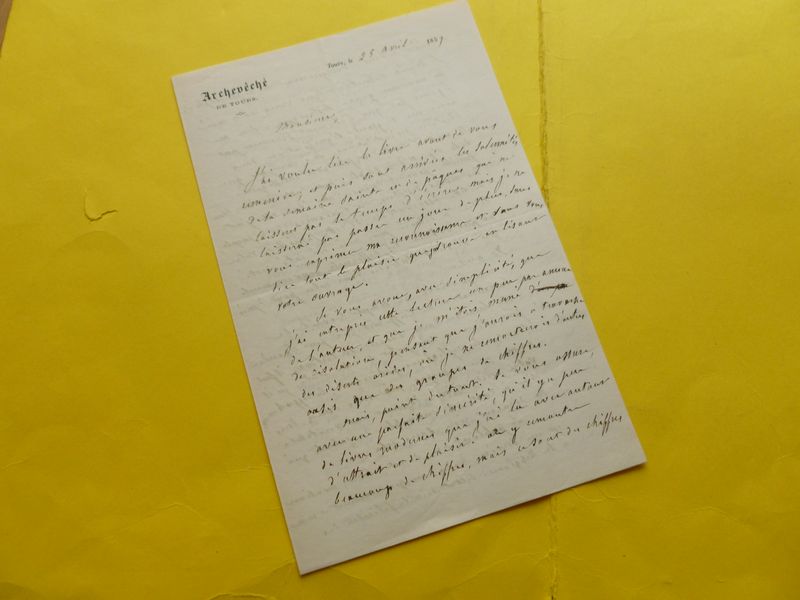 Archevêché
DE TOURS.
Tours, le 25 avril 1859
Monsieur,
J'ai voulu lire le livre avant de vous
remercier, et puis sont arrivées les solennités
de la semaine sainte et de pâques qui ne
laissent pas le temps d'écrire mais je ne
laisserai pas passer un jour de plus sans
vous exprimer ma reconnaissance et sans vous
dire tout le plaisir que j'ai trouvé en lisant
votre ouvrage.
Je vous avoue, avec simplicité, que
j'ai entrepris cette lecture un peu par amour
de l'auteur, et que je m'étois muni
de résolution, pensant que j'aurois à traverser
des déserts arides, où je ne rencontrerois d'autres
oasis que des groupes de chiffres.
mais, point du tout. Je vous assure,
avec une parfaite sincérité, qu'il y a peu
de livres modernes que j'ai lu avec autant
d'attrait et de plaisir: on y rencontre
beaucoup de chiffres, mais ce sont des chiffres